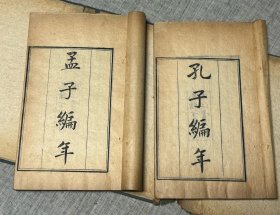 孔子編年
孟子編年